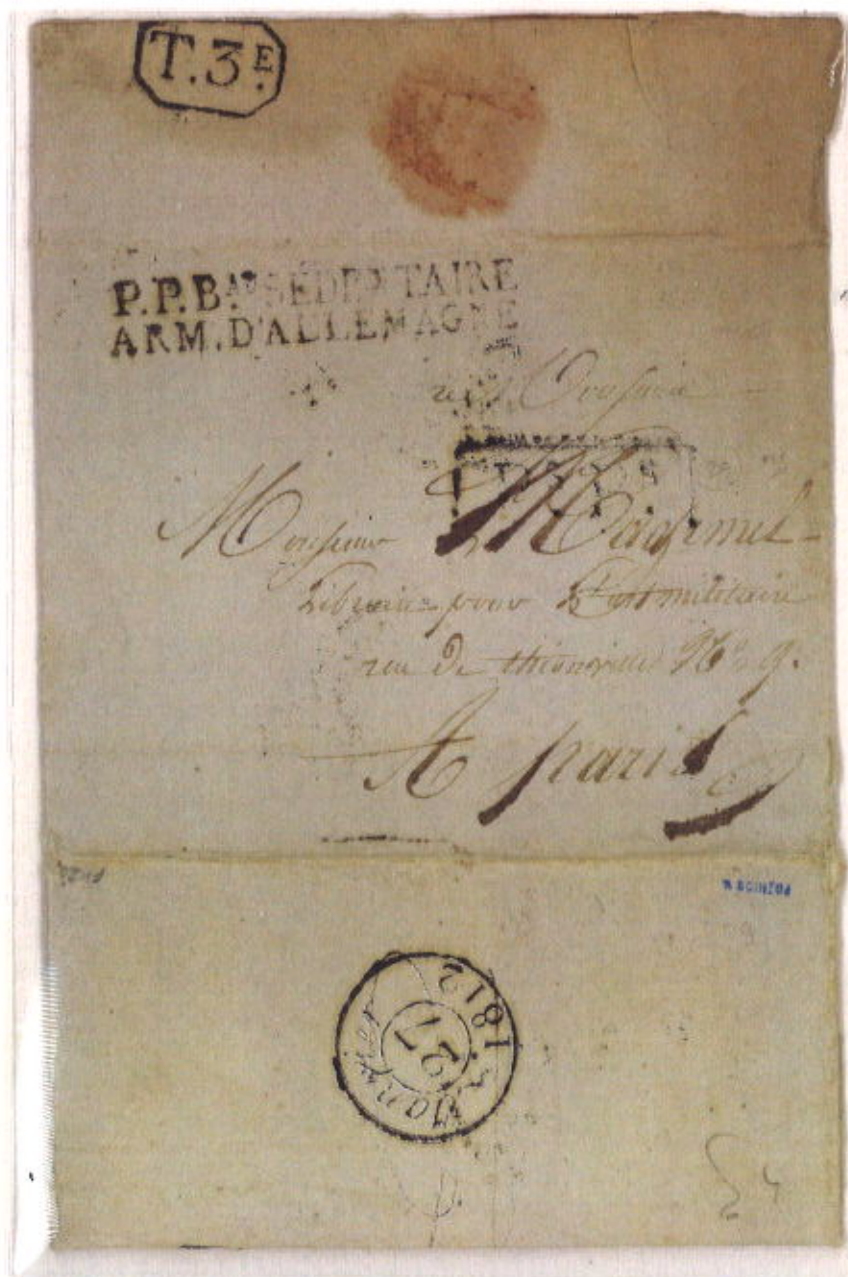 T.3E.
P.P.B.au SEDENTAIRE
ARM. D'ALLEMAGNE
Monsieur
Monsieur Magimel
Libraire pour L'art militaire
rue De thionville No 9.
A paris
27
Janvier 1812